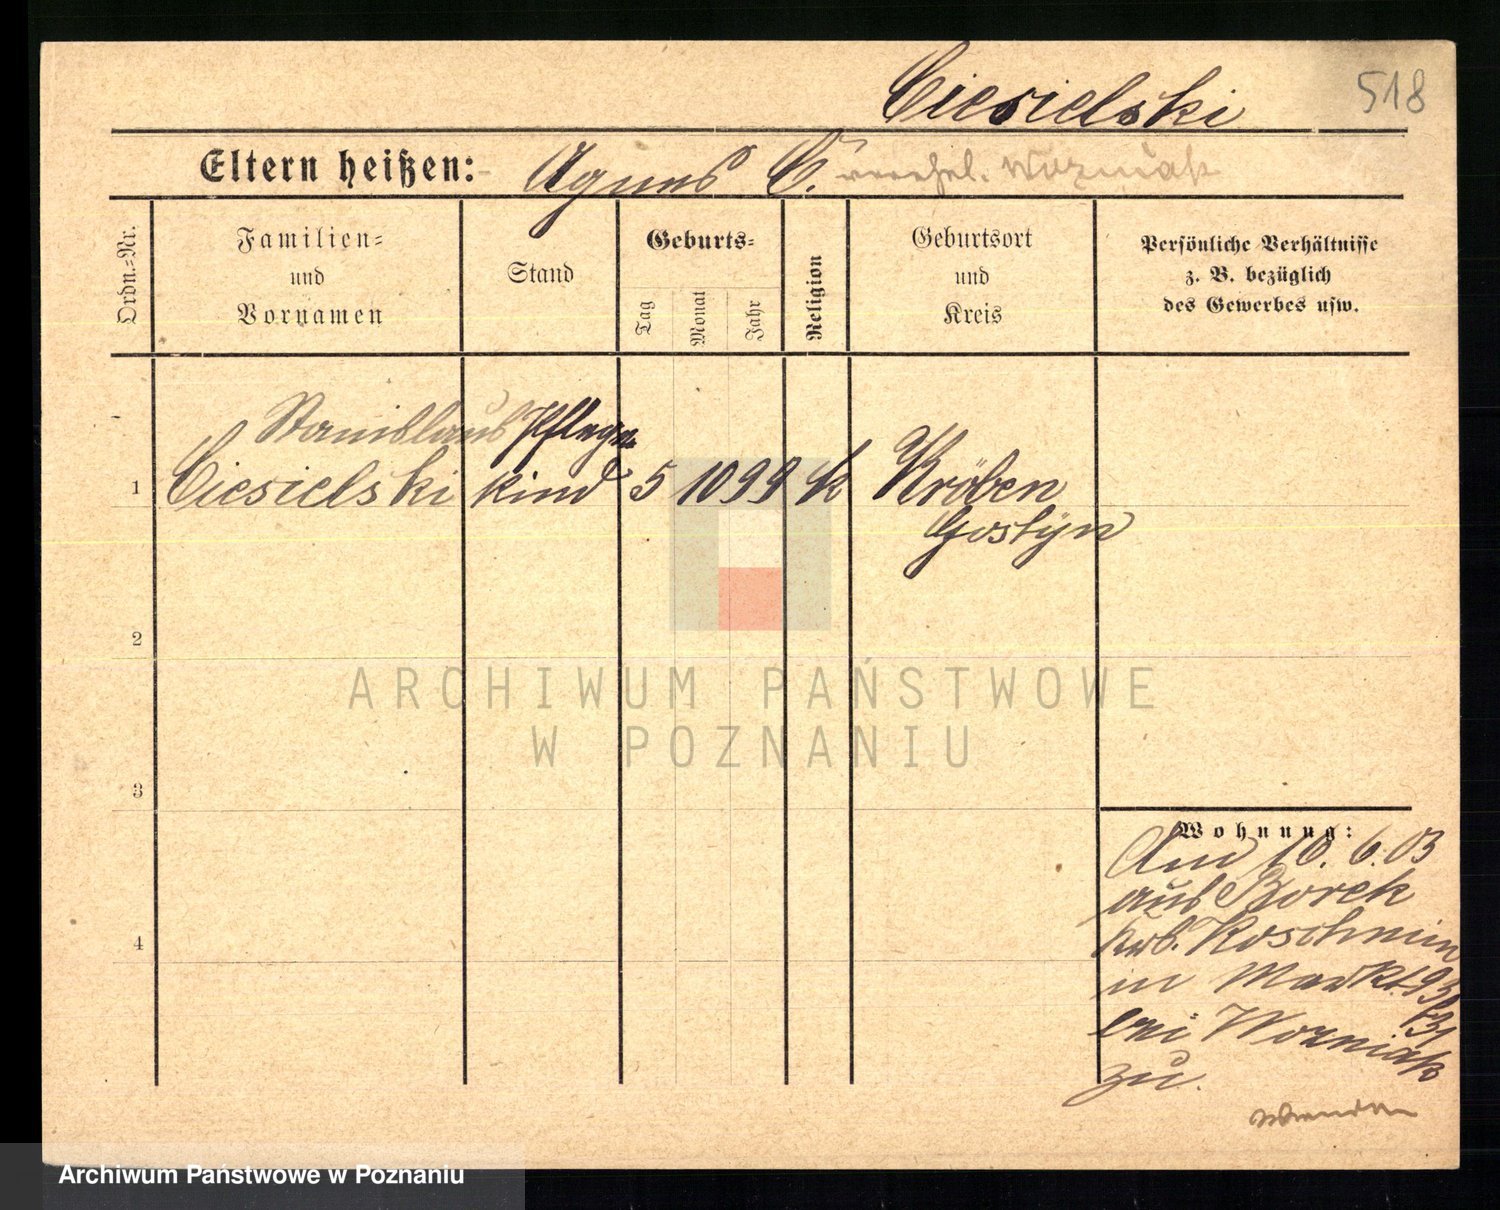 518
Ciesielski
Eltern heißen: Agnes C. verehel. Wozniak
Ordn.-Nr.
Familien-
und
Vornamen
Stand
Geburts-
Tag
Monat
Jahr
Religion
Geburtsort
und
Kreis
Persönliche Verhältnisse
z. B. bezüglich
des Gewerbes usw.
Stanislaus Pflege
1 Ciesielski kind 5 10 99 k Kröben
Gostyn
2
3
4
ARCHIWUM PAŃSTWOWE
W POZNANIU
Wohnung:
Am 10.6.03
aus Borek
Krb. Koschmin
in Markt 93
bei Wozniak
zu.
Wenden
Archiwum Państwowe w Poznaniu